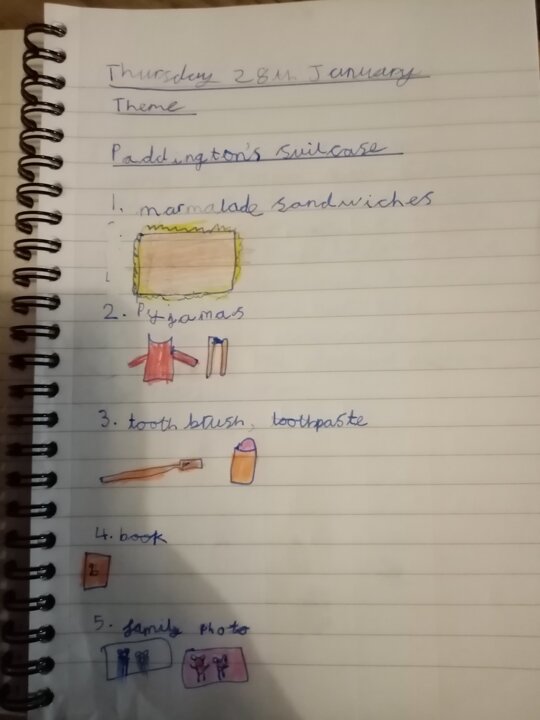 Thursday 28th January
Theme
Paddington's suitcase
1. marmalade sandwiches
2. Pyjamas
3. tooth brush, toothpaste
4. book
5. family photo